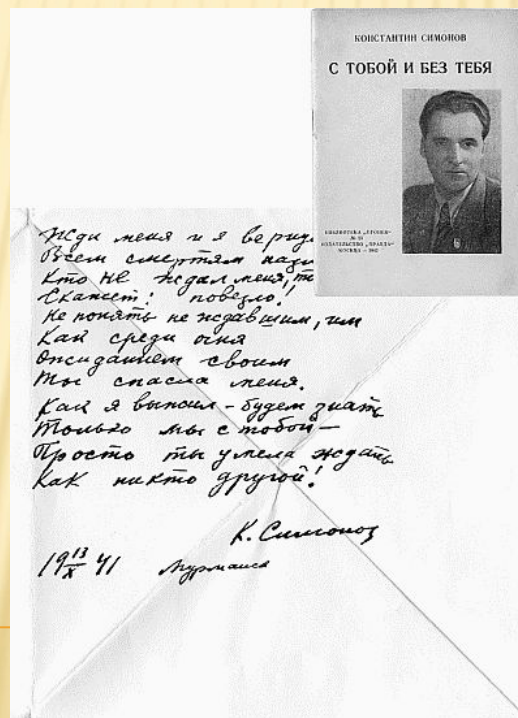 КОНСТАНТИН СИМОНОВ
С ТОБОЙ И БЕЗ ТЕБЯ
БИБЛИОТЕКА „ОГОНЕК“
ИЗДАТЕЛЬСТВО „ПРАВДА“
МОСКВА — 1942
Жди меня и я вернус
Всем смертям назл
Кто не ждал меня, т
Скажет: повезло!
Не понять не ждавшим, им
Как среди огня
Ожиданием своим
Ты спасла меня.
Как я выжил – будем знать
Только мы с тобой –
Просто ты умела ждать
Как никто другой!
К. Симонов
19 13/X 41 Мурманск